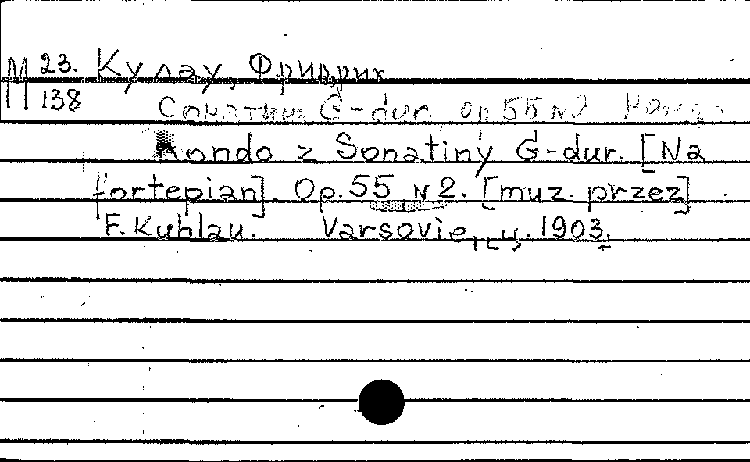 М 23. Кулау, Фридрих
138
Сонатина G-dur. op 55 N2 Рондо
Rondo z Sonatiny G-dur. [Na
fortepian]. Op. 55 N 2. [muz. przez]
F. Kuhlau. Varsovie, 1903.